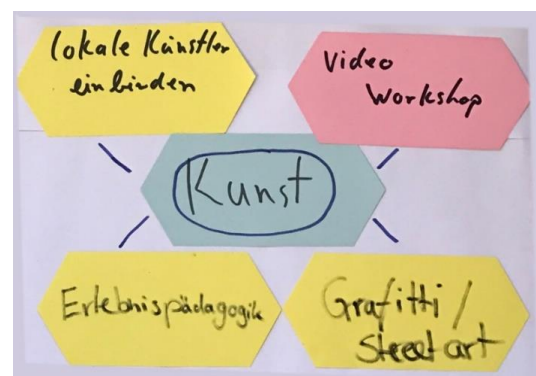 lokale Künstler
einbinden
Video
Workshop
Kunst
Erlebnispädagogik
Grafitti /
Streetart